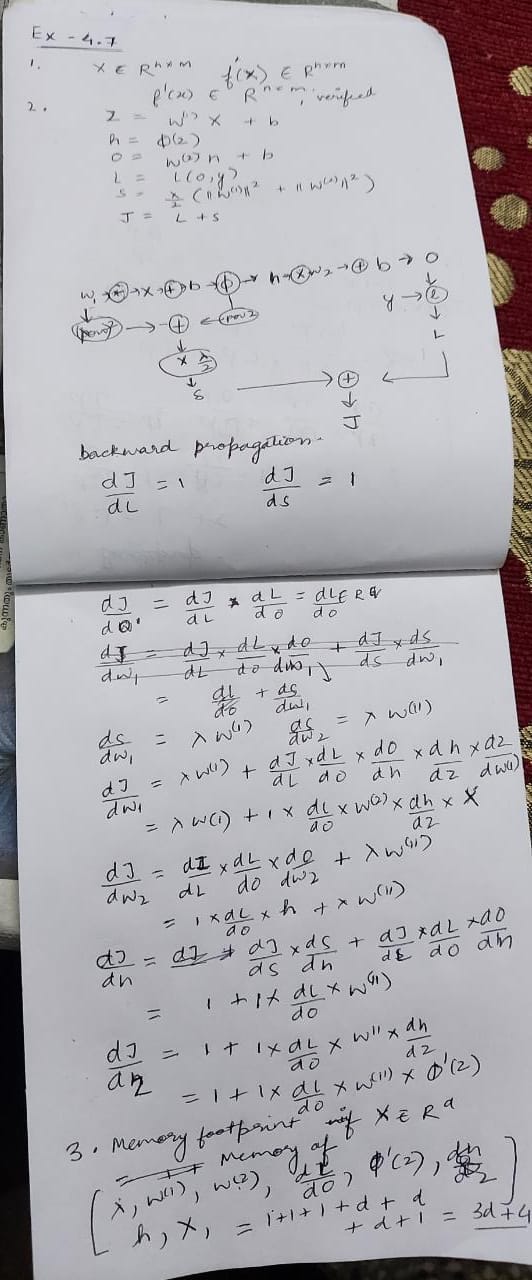 Ex - 4.7
1. X ∈ R^{n×m} f'(x) ∈ R^{n×m}
f'(x) ∈ R^{n×m}, verified
2. z = w^{(1)} x + b
h = φ(z)
o = w^{(2)} h + b
L = L(o,y)
s = λ/2 (||w^{(1)}||² + ||w^{(2)}||²)
J = L + s
w₁ → × → x → + b → φ → h → × w₂ → + b → o
y → L
pow2 → + ← pow2
L
× λ/2
s → +
J
backward propagation.
dJ/dL = 1 dJ/ds = 1
dJ/do = dJ/dL * dL/do = dL/do ∈ R^q
dJ/dw₁ = dJ/dL × dL/do × do/dw₁ + dJ/ds × ds/dw₁
= dL/do + ds/dw₁
ds/dw₁ = λ w^{(1)} ds/dw₂ = λ w^{(11)}
dJ/dw₁ = λ w^{(1)} + dJ/dL × dL/do × do/dh × dh/dz × dz/dw^{(1)}
= λ w^{(1)} + 1 × dL/do × w^{(2)} × dh/dz × X
dJ/dw₂ = dJ/dL × dL/do × do/dw₂ + λ w^{(11)}
= 1 × dL/do × h + × w^{(11)}
dJ/dh = dJ dJ/ds × ds/dh + dJ/dL × dL/do × do/dh
= 1 + 1 × dL/do × w^{(11)}
dJ/dz = 1 + 1 × dL/do × w^{11} × dh/dz
= 1 + 1 × dL/do × w^{(11)} × φ'(z)
3. Memory footprint if X ∈ R^d
= Memory of
[ x, w^{(1)}, w^{(2)}, dL/do, φ'(z), dh/dz
h, X, = 1+1+1+d+d
+d+1 = 3d+4 ]